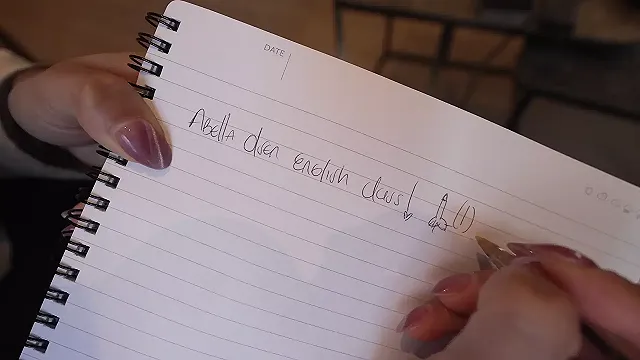 DATE
Abella Olsen english class! (1)